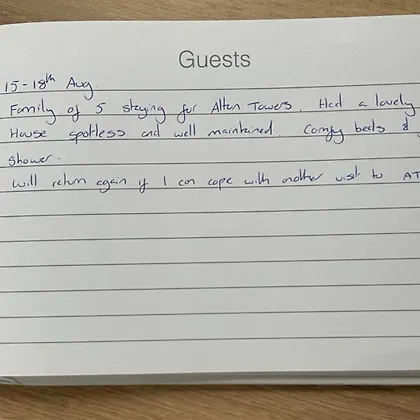 Guests
15-18th Aug
Family of 5 staying for Alton Towers. Had a lovely
House spotless and well maintained. Comfy beds &
shower.
Will return again if I can cope with another visit to AT